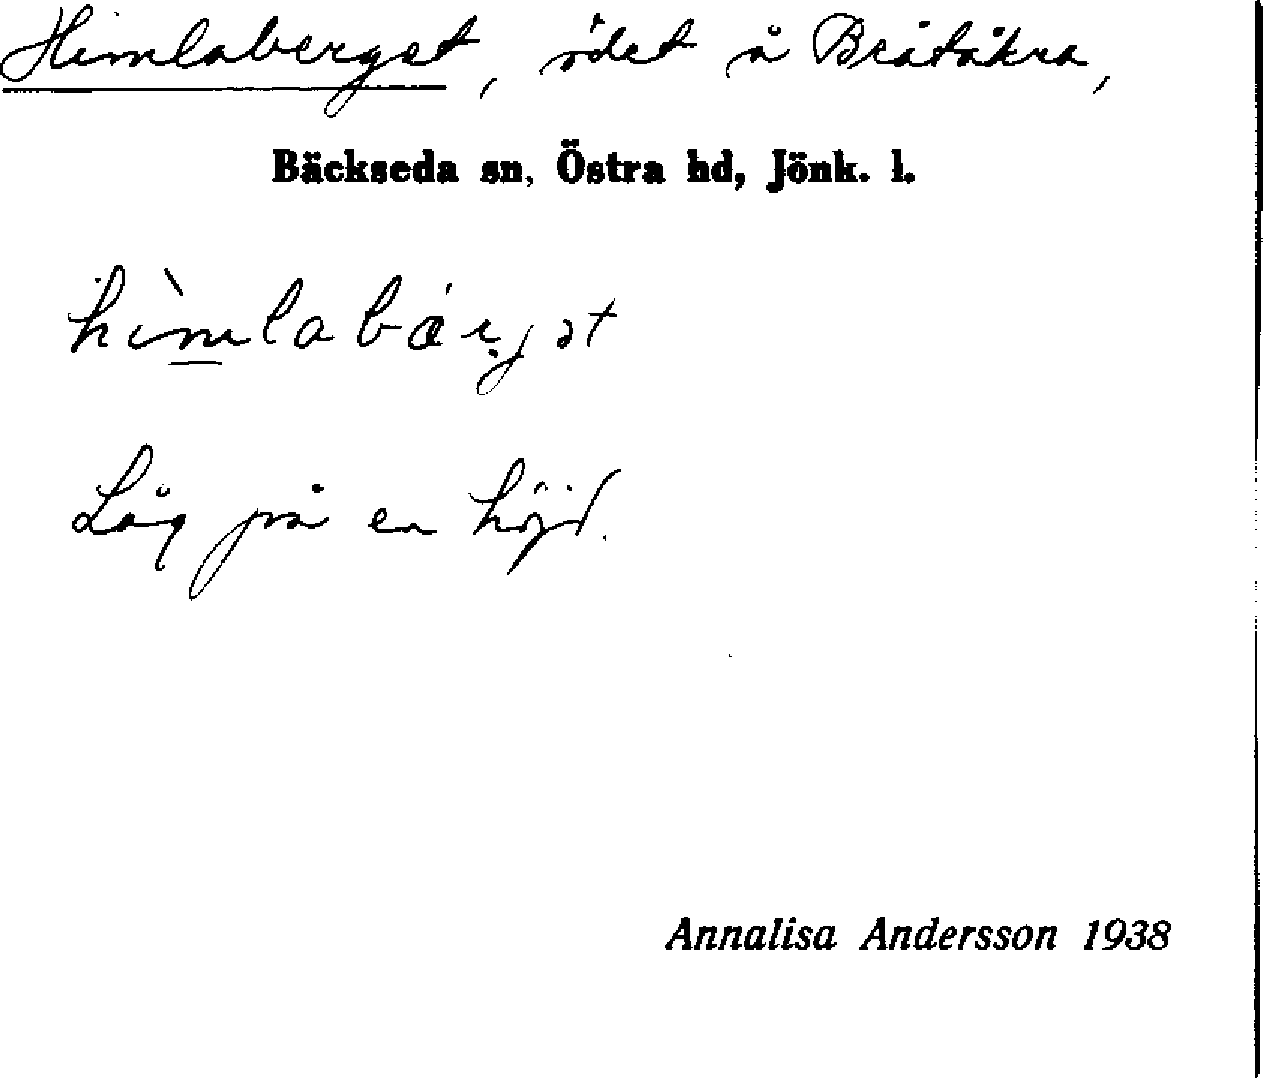 Himlaberget, ödet å Bråtåkra,
Bäckseda sn, Östra hd, Jönk. l.
hìmlabærjət
Låg på en höjd.
Annalisa Andersson 1938